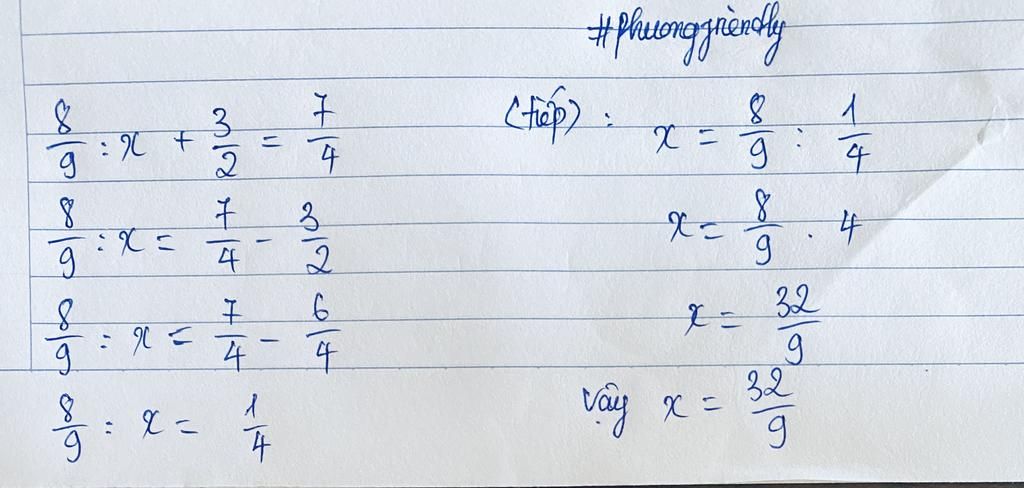 #phuonggriendly
8/9 : x + 3/2 = 7/4
8/9 : x = 7/4 - 3/2
8/9 : x = 7/4 - 6/4
8/9 : x = 1/4
(tiếp) : x = 8/9 : 1/4
x = 8/9 . 4
x = 32/9
Vậy x = 32/9